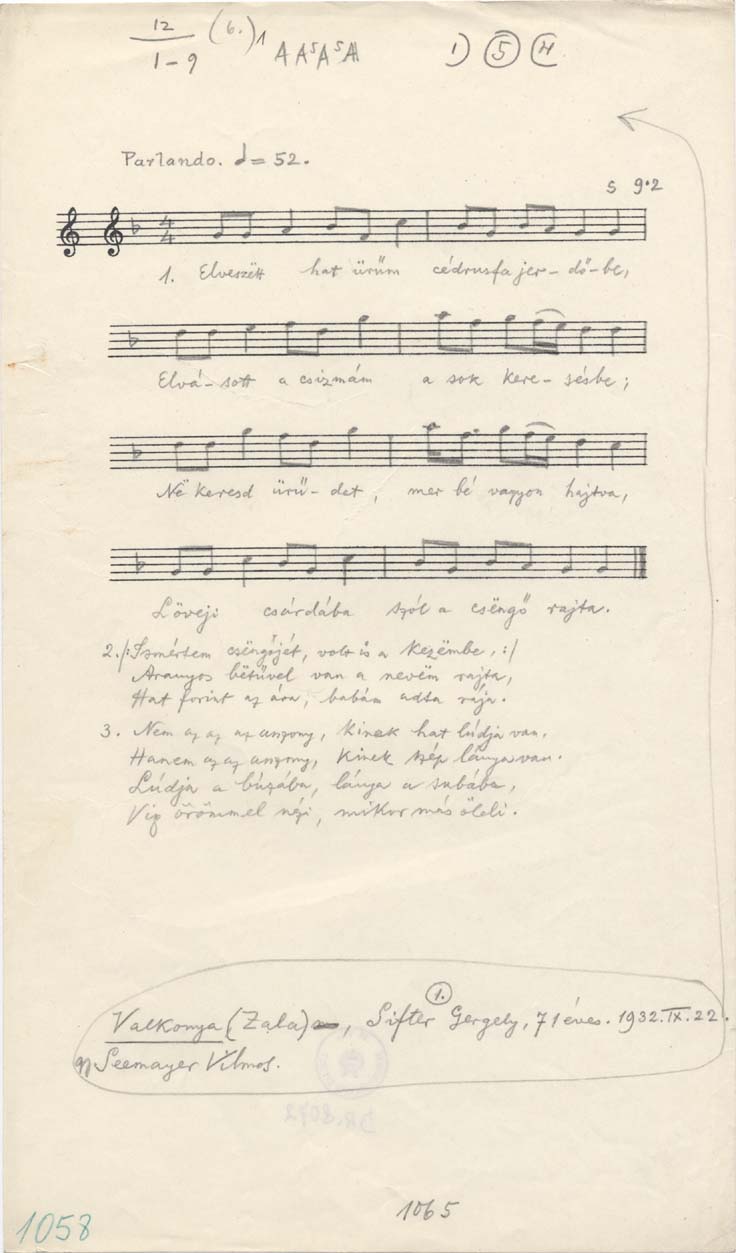 12 (6.) 1 A A⁵ A⁵ A 1) 5 4
1-9
Parlando. ♩= 52.
5 9·2
4
4
1. Elveszëtt hat ürüm cédrusfa jer-dő-be,
Elvá-sott a csizmám a sok kere-sésbe;
Në keresd ürü-det, mer bé vagyon hajtva,
Löveji csárdába szól a csëngő rajta.
2./: Ismértem csëngőjét, volt is a kezëmbe, :/
Aranyos bëtűvel van a nevëm rajta,
Hat forint az ára, babám adta rája.
3. Nem az az az asszony, kinek hat lúdja van,
Hanem az az asszony, kinek szép lánya van.
Lúdja a búzába, lánya a subába,
Vig örömmel nézi, mikor más öleli.
1.
Valkonya (Zala), Sifter Gergely, 71 éves. 1932. IX. 22.
gy Seemayer Vilmos.
DR. 8072
1065
1058